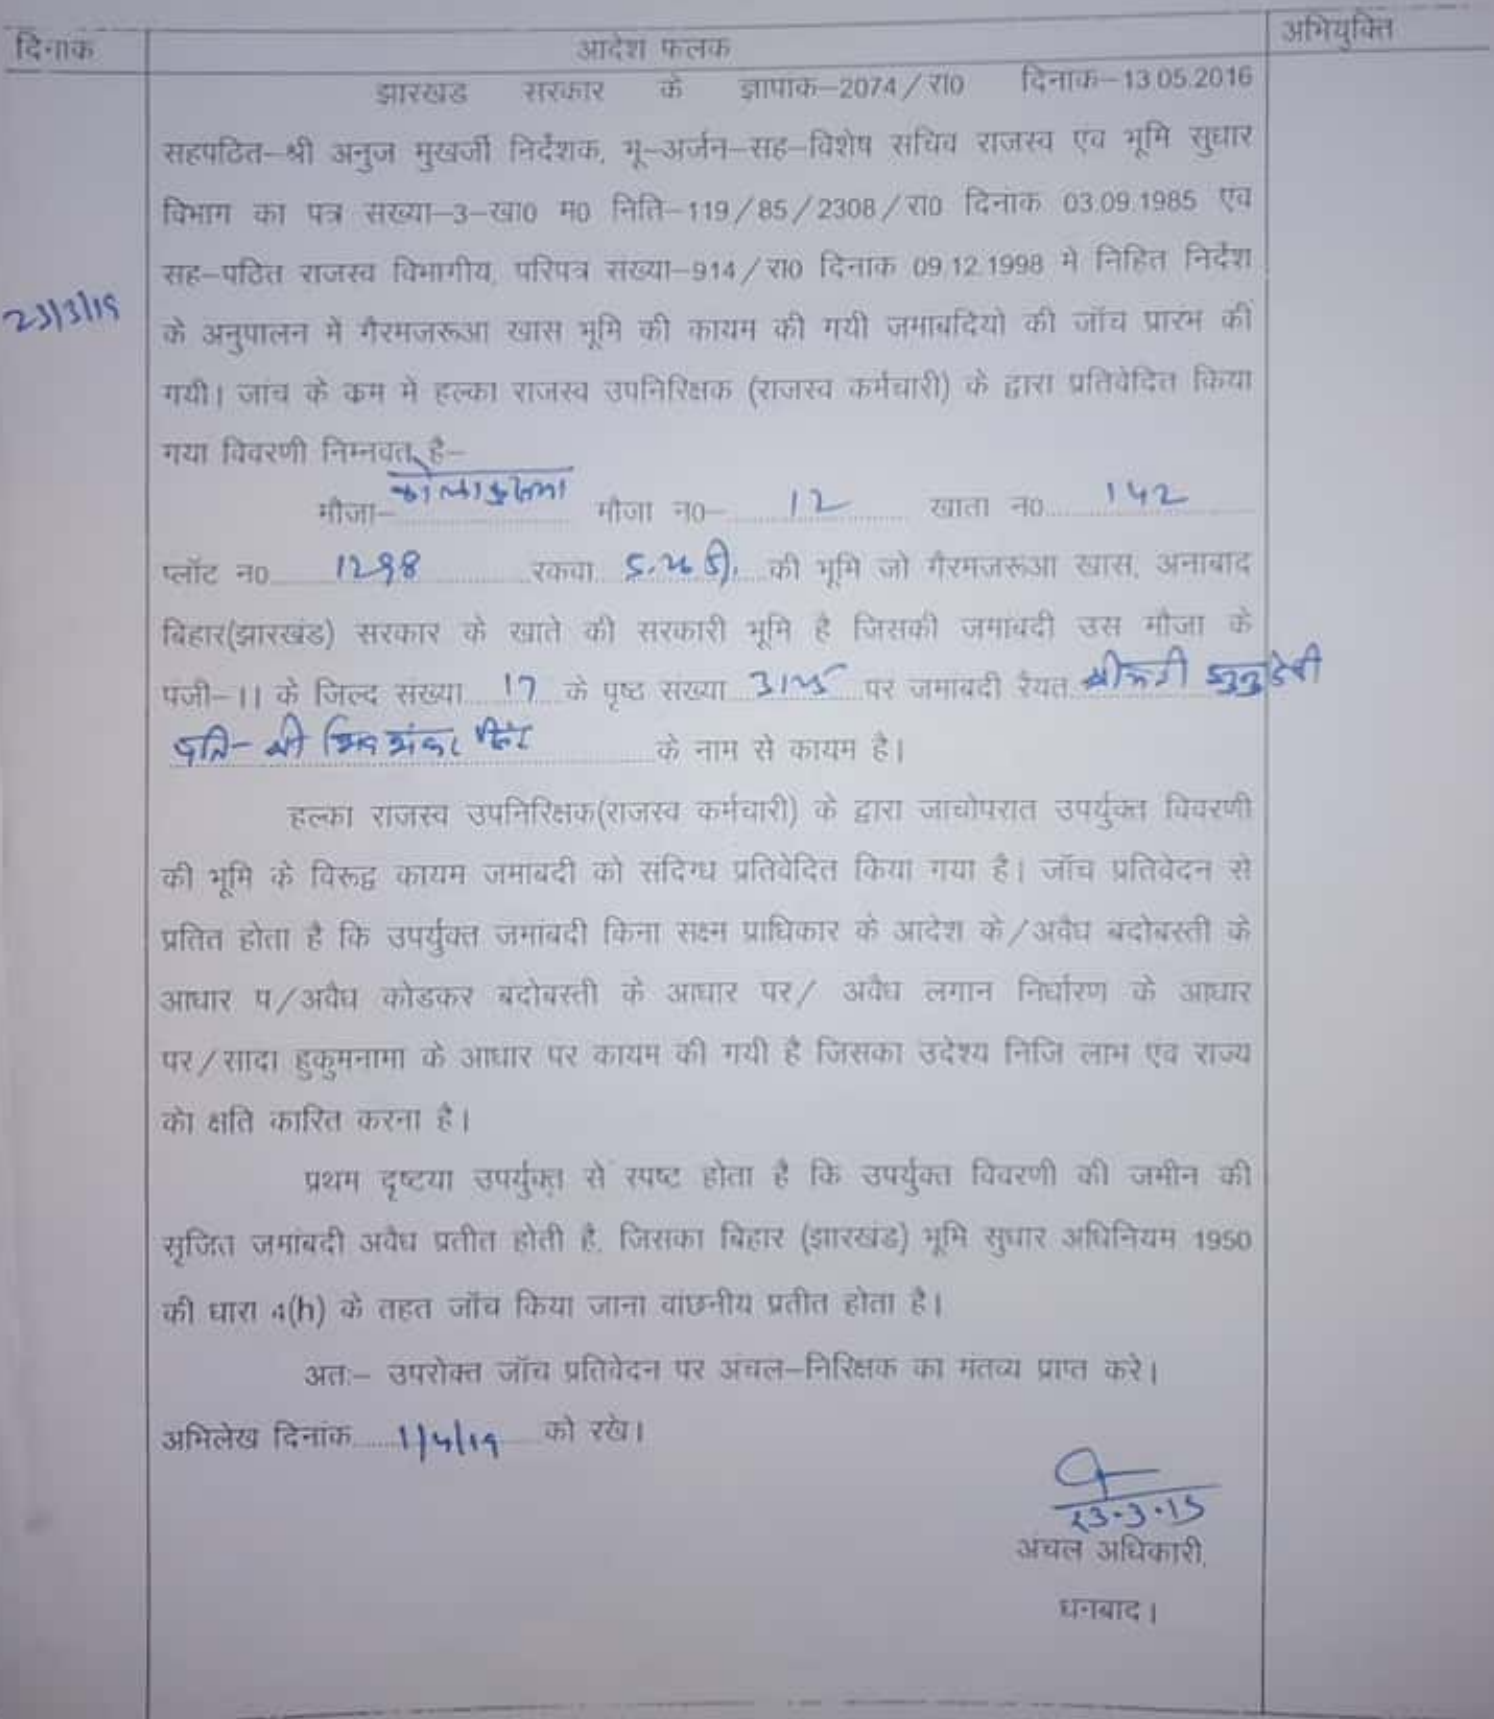 दिनाक आदेश फलक अभियुक्ति
झारखड सरकार के ज्ञापाक–2074/रा0 दिनाक–13.05.2016
सहपठित–श्री अनुज मुखर्जी निर्देशक, भू–अर्जन–सह–विशेष सचिव राजस्व एव भूमि सुधार
विभाग का पत्र सख्या–3–खा0 म0 निति–119/85/2308/रा0 दिनाक 03.09.1985 एव
सह–पठित राजस्व विभागीय, परिपत्र सख्या–914/रा0 दिनाक 09.12.1998 मे निहित निर्देश
के अनुपालन में गैरमजरूआ खास भूमि की कायम की गयी जमाबदियो की जॉच प्रारंभ की
गयी। जांच के कम मे हल्का राजस्व उपनिरिक्षक (राजस्व कर्मचारी) के द्वारा प्रतिवेदित किया
गया विवरणी निम्नवत् है–
मौजा– मौजा न0– 12 खाता न0 142
प्लॉट न0 1298 रकवा की भूमि जो गैरमजरूआ खास, अनाबाद
बिहार(झारखंड) सरकार के खाते की सरकारी भूमि है जिसकी जमाबदी उस मौजा के
पजी–11 के जिल्द सख्या 17 के पृष्ठ सख्या पर जमांबदी रैयत श्रीमती देवी
पति– श्री के नाम से कायम है।
हल्का राजस्व उपनिरिक्षक(राजस्व कर्मचारी) के द्वारा जाचोपरात उपर्युक्त विवरणी
की भूमि के विरूद्व कायम जमांबदी को संदिग्ध प्रतिवेदित किया गया है। जॉच प्रतिवेदन से
प्रतित होता है कि उपर्युक्त जमांबदी किना सक्ष्म प्राधिकार के आदेश के/अवैध बदोबस्ती के
आधार प/अवैध कोडकर बदोबस्ती के आधार पर/ अवैध लगान निर्धारण के आधार
पर/सादा हुकुमनामा के आधार पर कायम की गयी है जिसका उदेश्य निजि लाभ एव राज्य
को क्षति कारित करना है।
प्रथम दृष्टया उपर्युक्त से स्पष्ट होता है कि उपर्युक्त विवरणी की जमीन की
सृजित जमांबदी अवैध प्रतीत होती है, जिसका बिहार (झारखंड) भूमि सुधार अधिनियम 1950
की धारा 4(h) के तहत जॉच किया जाना वांछनीय प्रतीत होता है।
अतः– उपरोक्त जॉच प्रतिवेदन पर अंचल–निरिक्षक का मंतव्य प्राप्त करे।
अभिलेख दिनांक को रखे।
अंचल अधिकारी,
धनबाद।